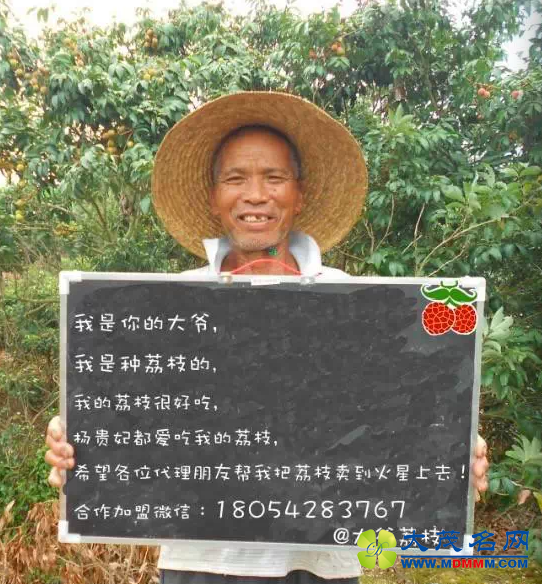 我是你的大爷,
我是种荔枝的,
我的荔枝很好吃,
杨贵妃都爱吃我的荔枝,
希望各位代理朋友帮我把荔枝卖到火星上去！
合作加盟微信：18054283767
@大爷荔枝
大茂名网
WWW.MDMMM.COM